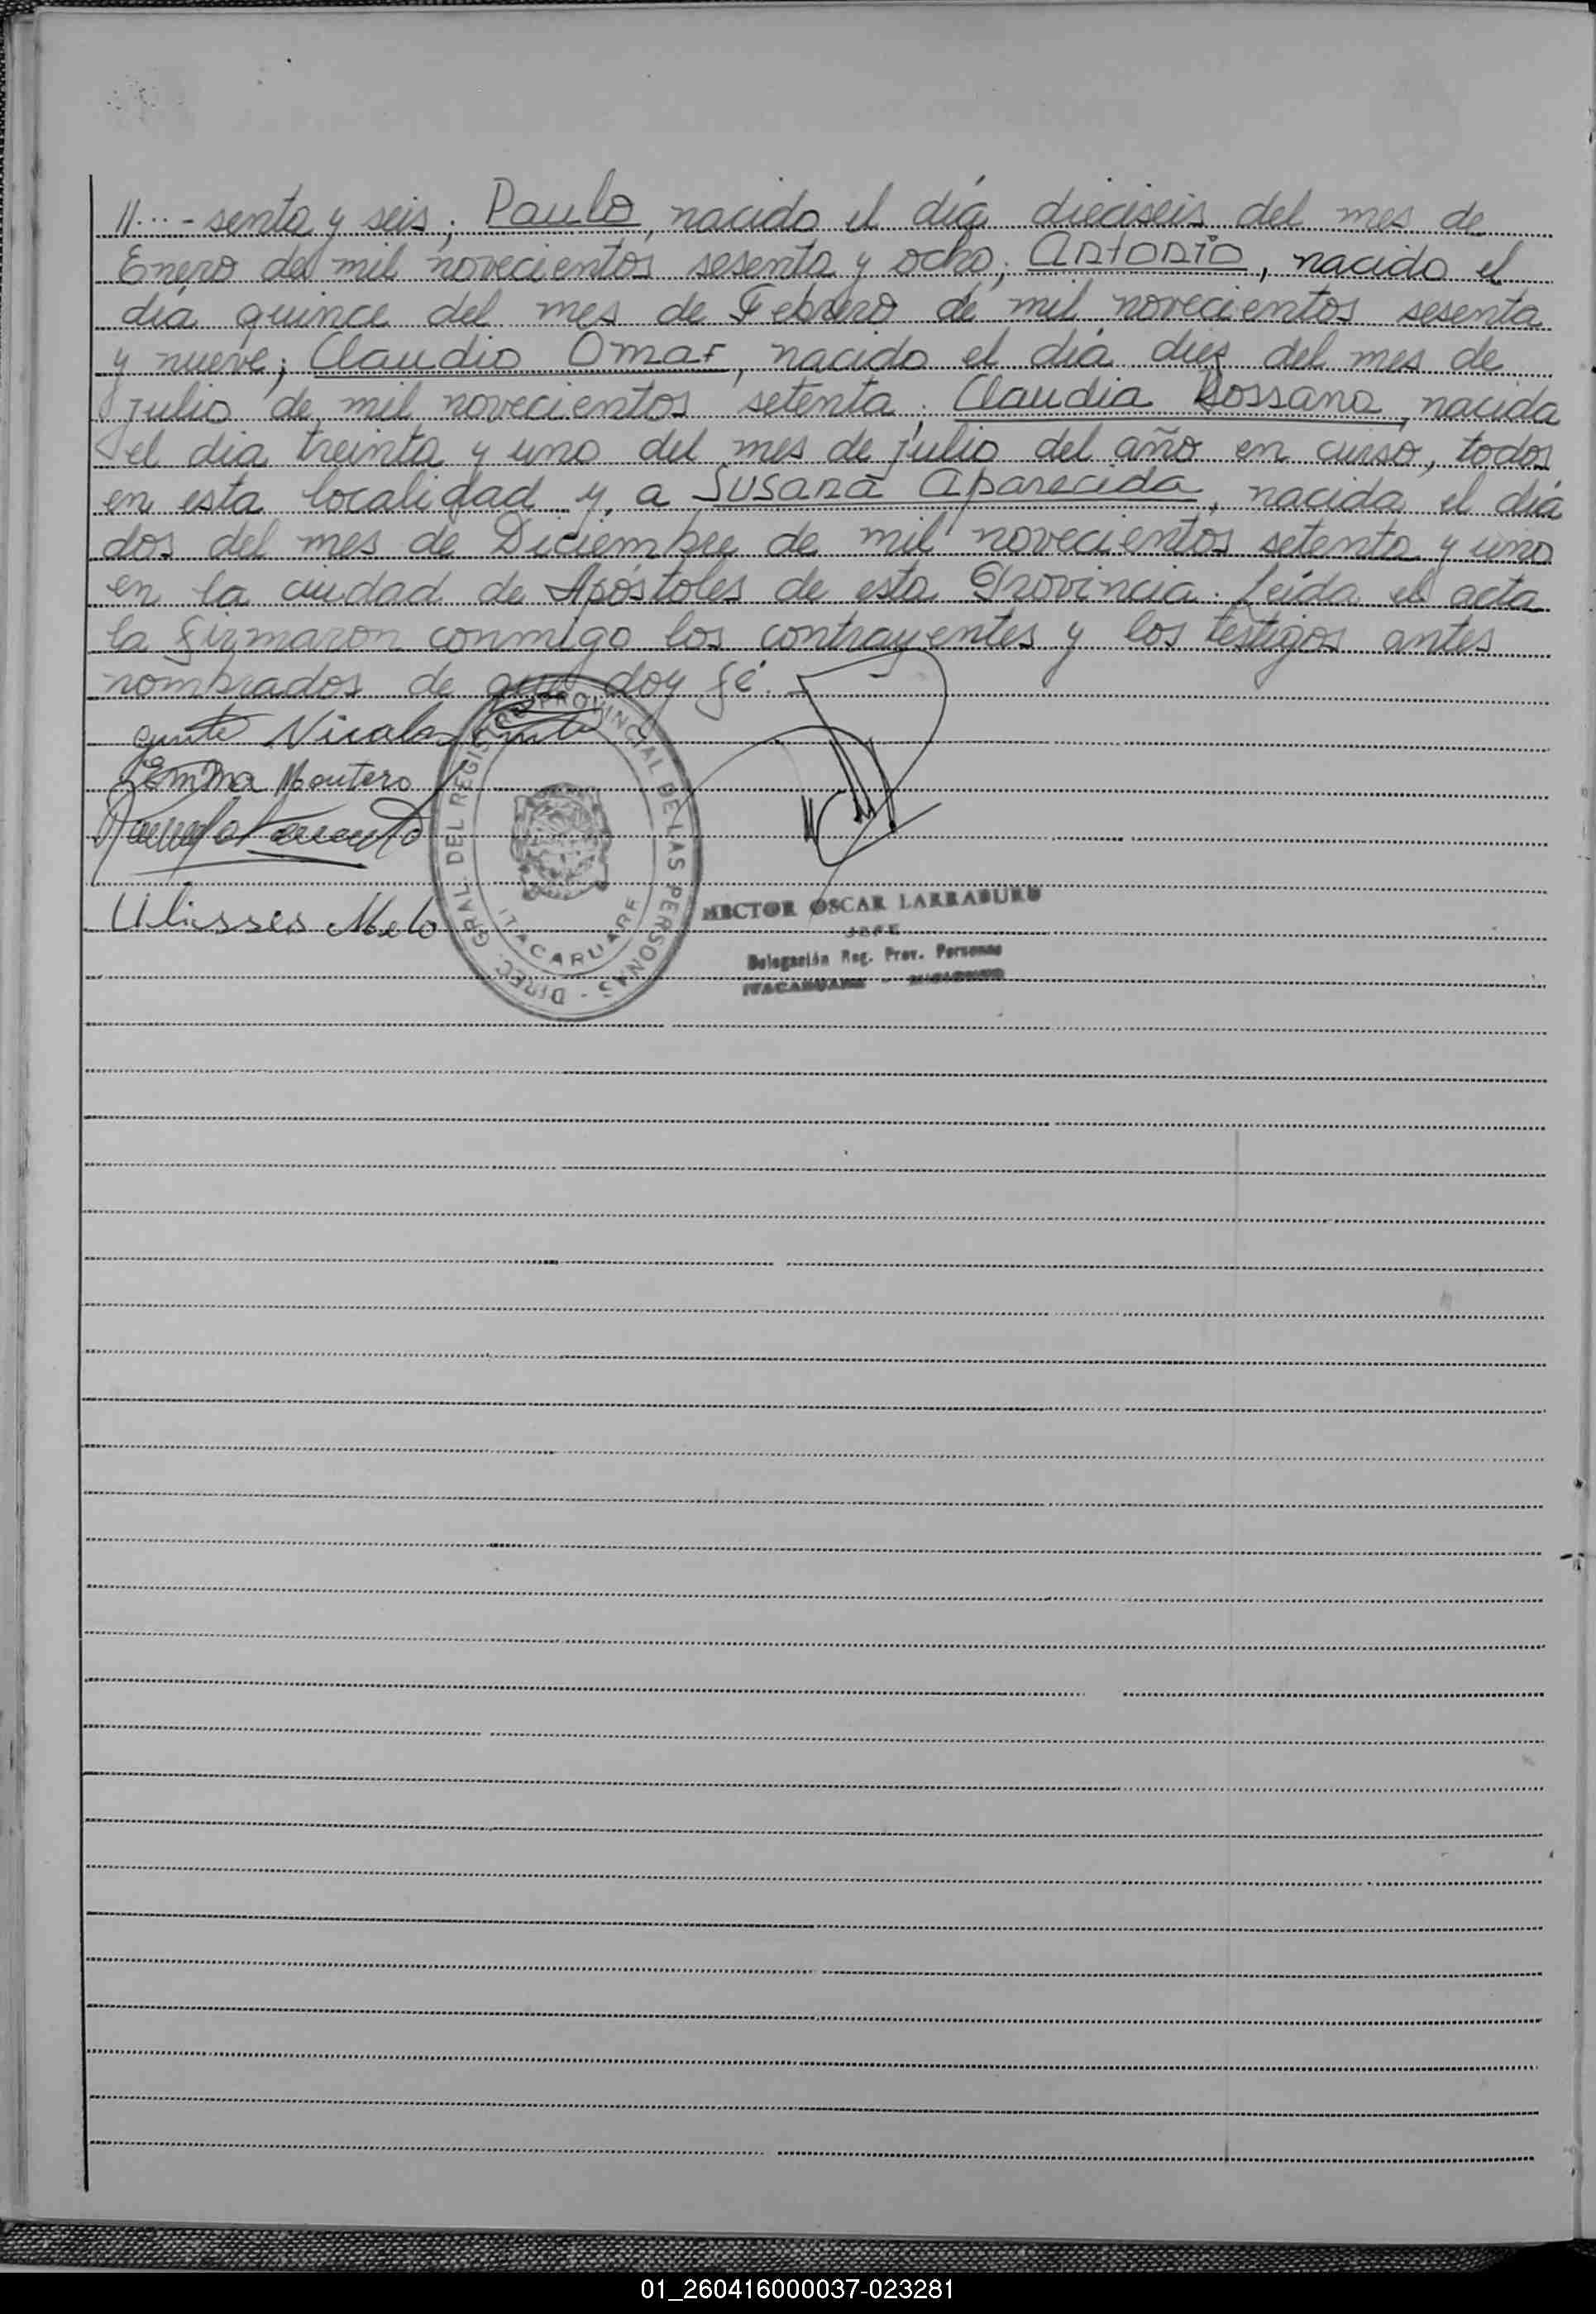 //...- senta y seis; Paulo, nacido el día dieciseis del mes de
Enero de mil novecientos sesenta y ocho; Antonio, nacido el
día quince del mes de Febrero de mil novecientos sesenta
y nueve; Claudio Omar, nacido el día diez del mes de
julio de mil novecientos setenta; Claudia Rossana, nacida
el dia treinta y uno del mes de julio del año en curso, todos
en esta localidad y, a Susana Aparecida, nacida el día
dos del mes de Diciembre de mil novecientos setenta y uno
en la ciudad de Apóstoles de esta Provincia. Leída el acta
la firmaron conmigo los contrayentes y los testigos antes
nombrados de que doy fé.
Nicolas
Emma Montero
Ulisses Melo
DIREC. GRAL. DEL REGISTRO PROVINCIAL DE LAS PERSONAS -
ITACARUARE
HECTOR OSCAR LARRABURU
JEFE
Delegación Reg. Prov. Personas
ITACARUARE - MISIONES
01_260416000037-023281